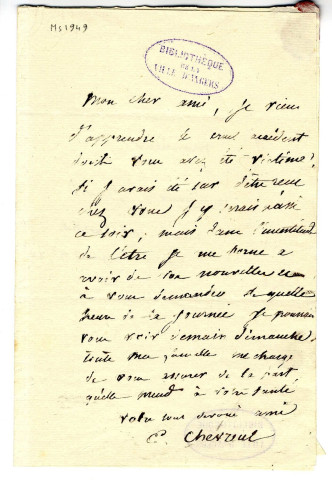 Ms 1949
BIBLIOTHÈQUE
DE LA
VILLE D'ANGERS
Mon cher ami, je viens
d'apprendre le cruel accident
dont vous avez été victime.
Si j'avais été sur d'être reçu
chez vous j'y serais passé
ce soir; mais dans l'incertitude
de l'être je me borne a
avoir de vos nouvelles et
à vous demander de quelle
heure de la journée je pourrai
vous voir demain dimanche
toute ma famille me charge
de vous assurer de la part
qu'elle prend à votre santé
votre tout dévoué ami
E. Chevreul